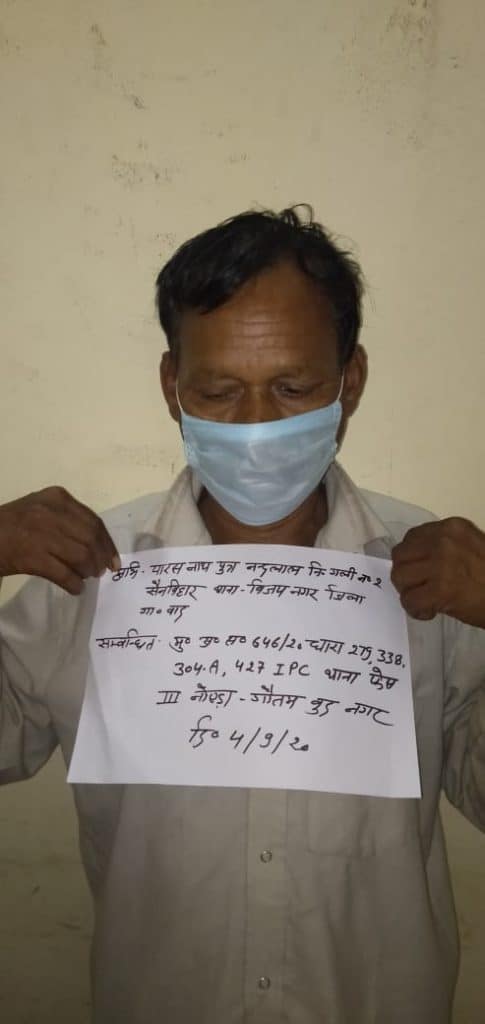 अभि- पारस नाथ पुत्र नन्दलाल नि गली न० 2
सैनविहार थाना- विजय नगर जिला
गा० बाद
सम्बन्धित- मु० अ० स० 646/20 धारा 279, 338,
304.A, 427 IPC थाना फेस
III नोएडा- गौतम बुद्ध नगर
दि० 4/9/20